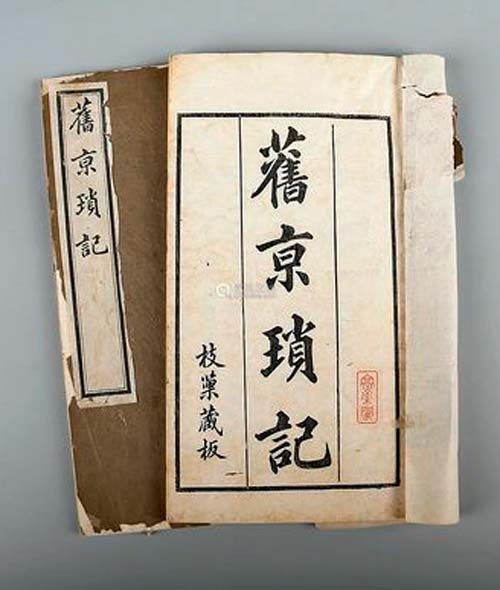 舊京瑣記
舊京瑣記
枝巢藏板